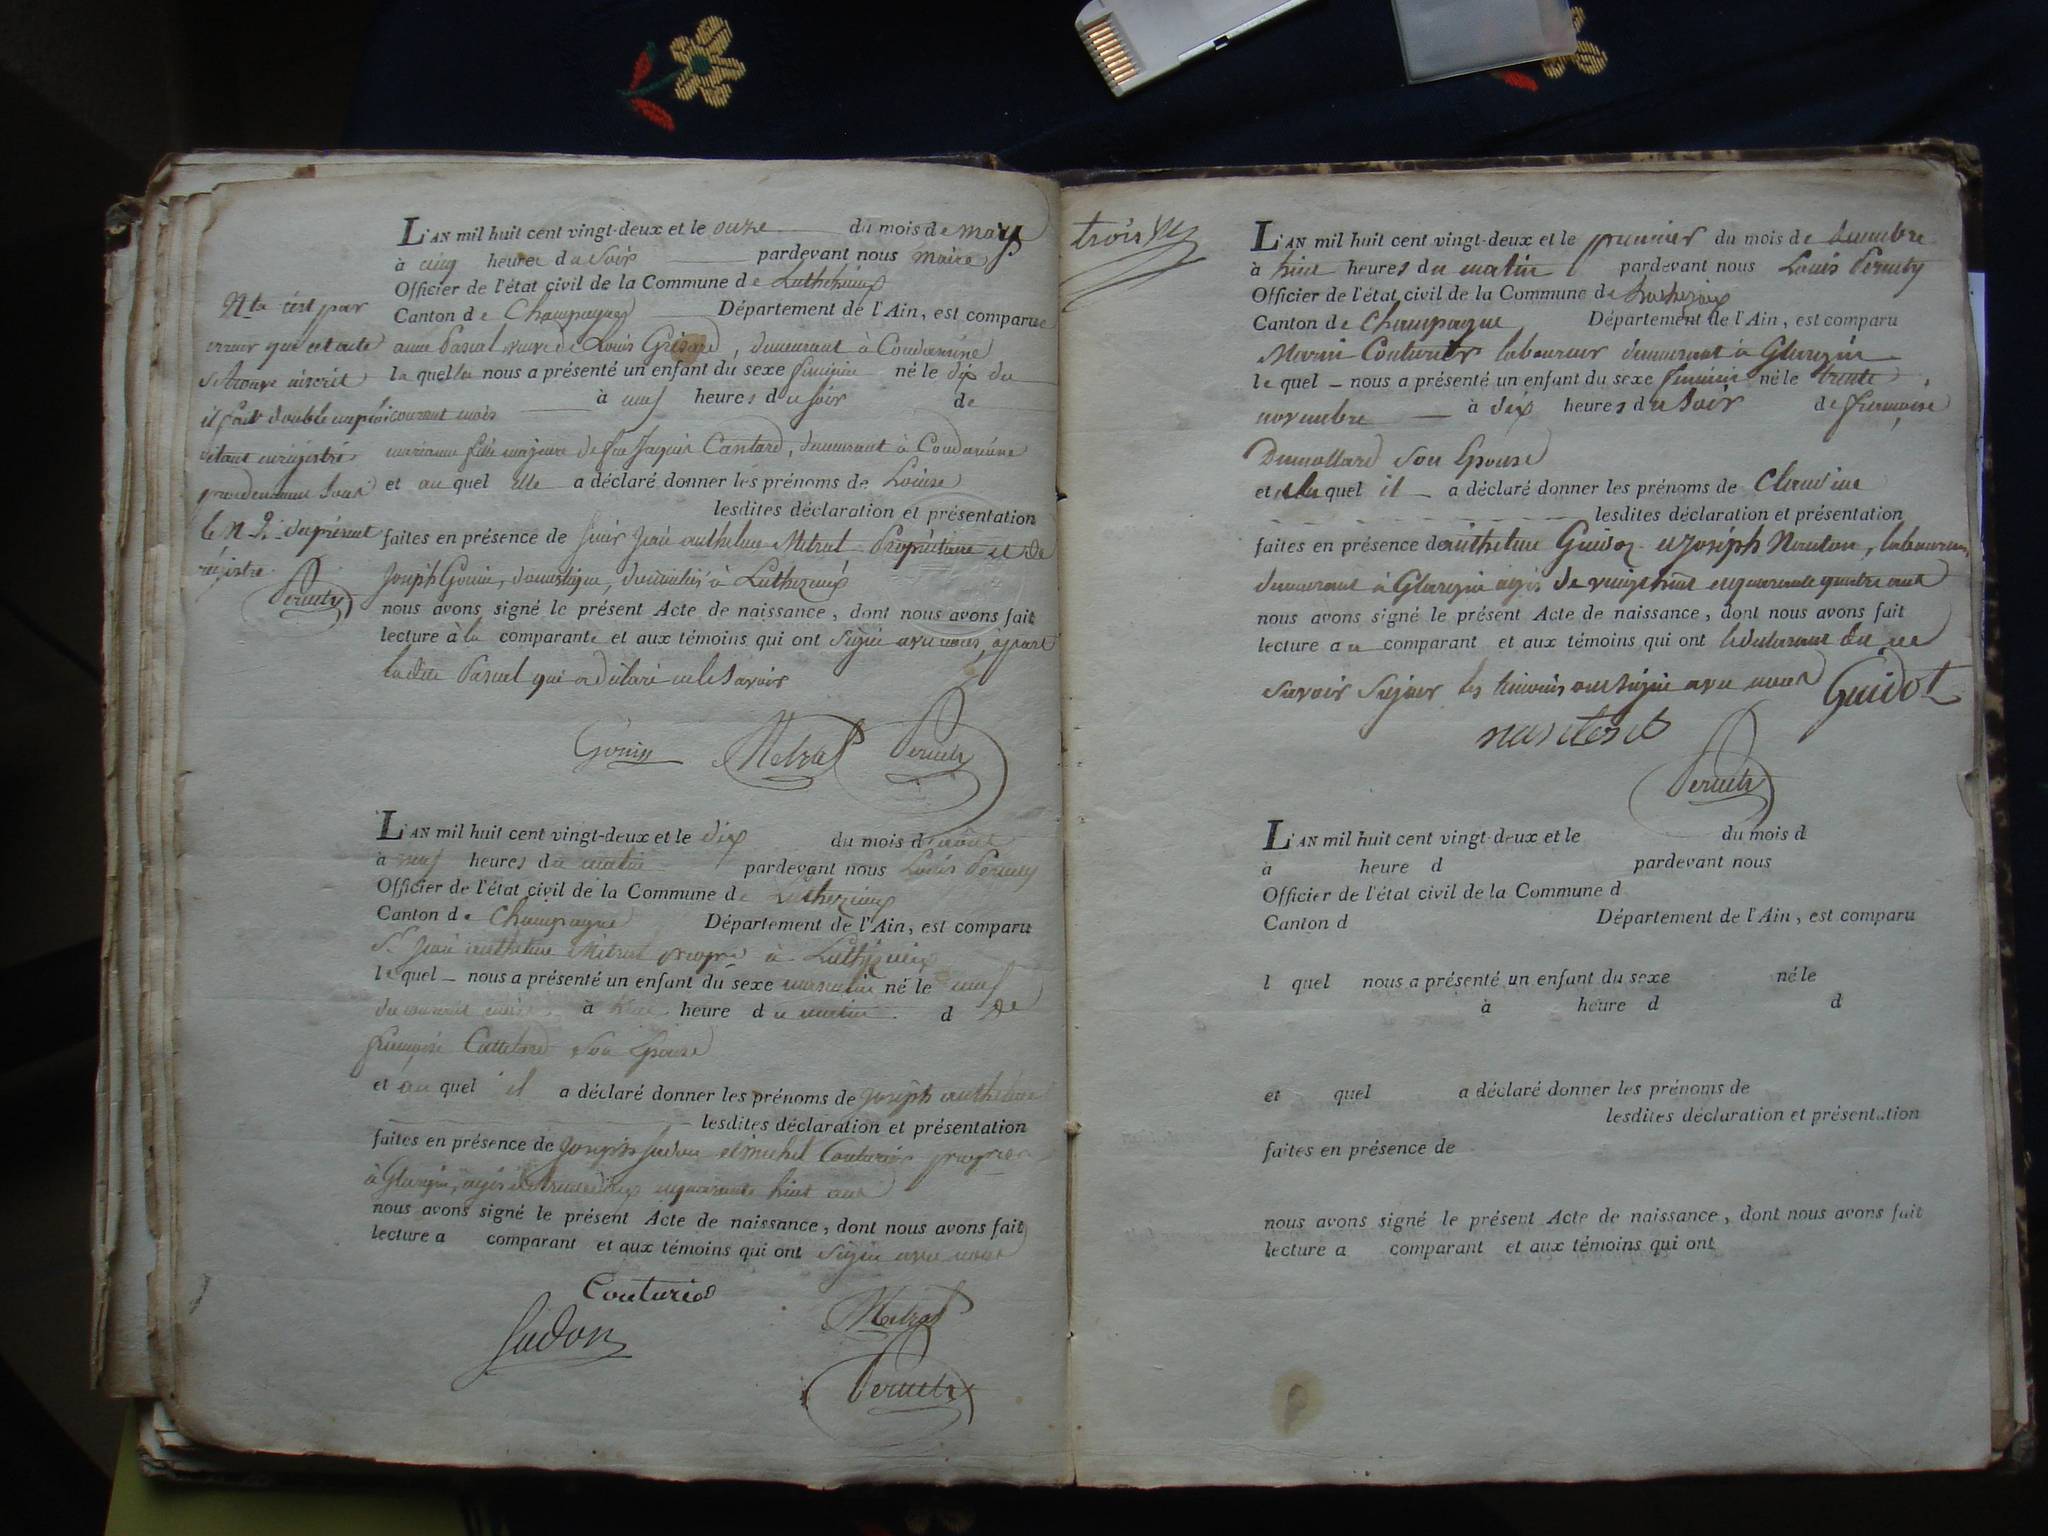 L'AN mil huit cent vingt-deux et le onze du mois de mars
à cinq heures du soir pardevant nous maire
Officier de l'état civil de la Commune de Luthezieux
Canton de Champagne Département de l'Ain, est comparue
anne Pascal veuve de Louis Grisard, demeurant à Condamine
la quelle nous a présenté un enfant du sexe féminin né le dix du
courant mois à neuf heures du soir de
marianne fille majeure de feu Jaques Cantard, demeurant à Condamine
et au quel elle a déclaré donner les prénoms de Louise
lesdites déclaration et présentation
faites en présence de sieur Jean anthelme Metral Propriétaire et de
Joseph Gouin, domestique, domiciliés à Luthezieux
nous avons signé le présent Acte de naissance, dont nous avons fait
lecture à la comparante et aux témoins qui ont signé avec nous, a part
ladite Pascal qui a déclaré ne le savoir
Gouin Metral Perucly
Nta c'est par
erreur que cet acte
se trouve inscrit
il fait double emploi
étant enregistré
precedemment sous
le N 2. du présent
régistre
L'AN mil huit cent vingt-deux et le dix du mois d'août
à neuf heures du matin pardevant nous Louis
Officier de l'état civil de la Commune de Luthezieux
Canton de Champagne Département de l'Ain, est comparu
Sr. Jean anthelme Metral propre à Luthezieux
le quel nous a présenté un enfant du sexe masculin né le neuf
du courant mois à huit heure du matin d de
françoise Cattelard son Epouse
et au quel il a déclaré donner les prénoms de Joseph anthelme
lesdites déclaration et présentation
faites en présence de Joseph Judon et michel Couturier propres
à Glargin, agés de trente deux et quarante huit ans
nous avons signé le présent Acte de naissance, dont nous avons fait
lecture a comparant et aux témoins qui ont signé avec nous
Couturier
Judon Metral
trois
L'AN mil huit cent vingt-deux et le premier du mois de decembre
à huit heures du matin pardevant nous Louis
Officier de l'état civil de la Commune de Luthezieux
Canton de Champagne Département de l'Ain, est comparu
Marin Couturier laboureur demeurant à Glargin
le quel nous a présenté un enfant du sexe féminin né le trente
novembre à dix heures du soir de françoise
Dumollard son Epouse
et a la quel il a déclaré donner les prénoms de Claudine
lesdites déclaration et présentation
faites en présence de anthelme Guidoz et Joseph Nanton, laboureurs,
demeurant à Glargin agés de vingt huit et quarante quatre ans
nous avons signé le présent Acte de naissance, dont nous avons fait
lecture au comparant et aux témoins qui ont le declarant dit ne
savoir signer les témoins ont signé avec nous Guidot
L'AN mil huit cent vingt-deux et le du mois d
à heure d pardevant nous
Officier de l'état civil de la Commune d
Canton d Département de l'Ain, est comparu
l quel nous a présenté un enfant du sexe né le
à heure d d
et quel a déclaré donner les prénoms de
lesdites déclaration et présentation
faites en présence de
nous avons signé le présent Acte de naissance, dont nous avons fait
lecture a comparant et aux témoins qui ont